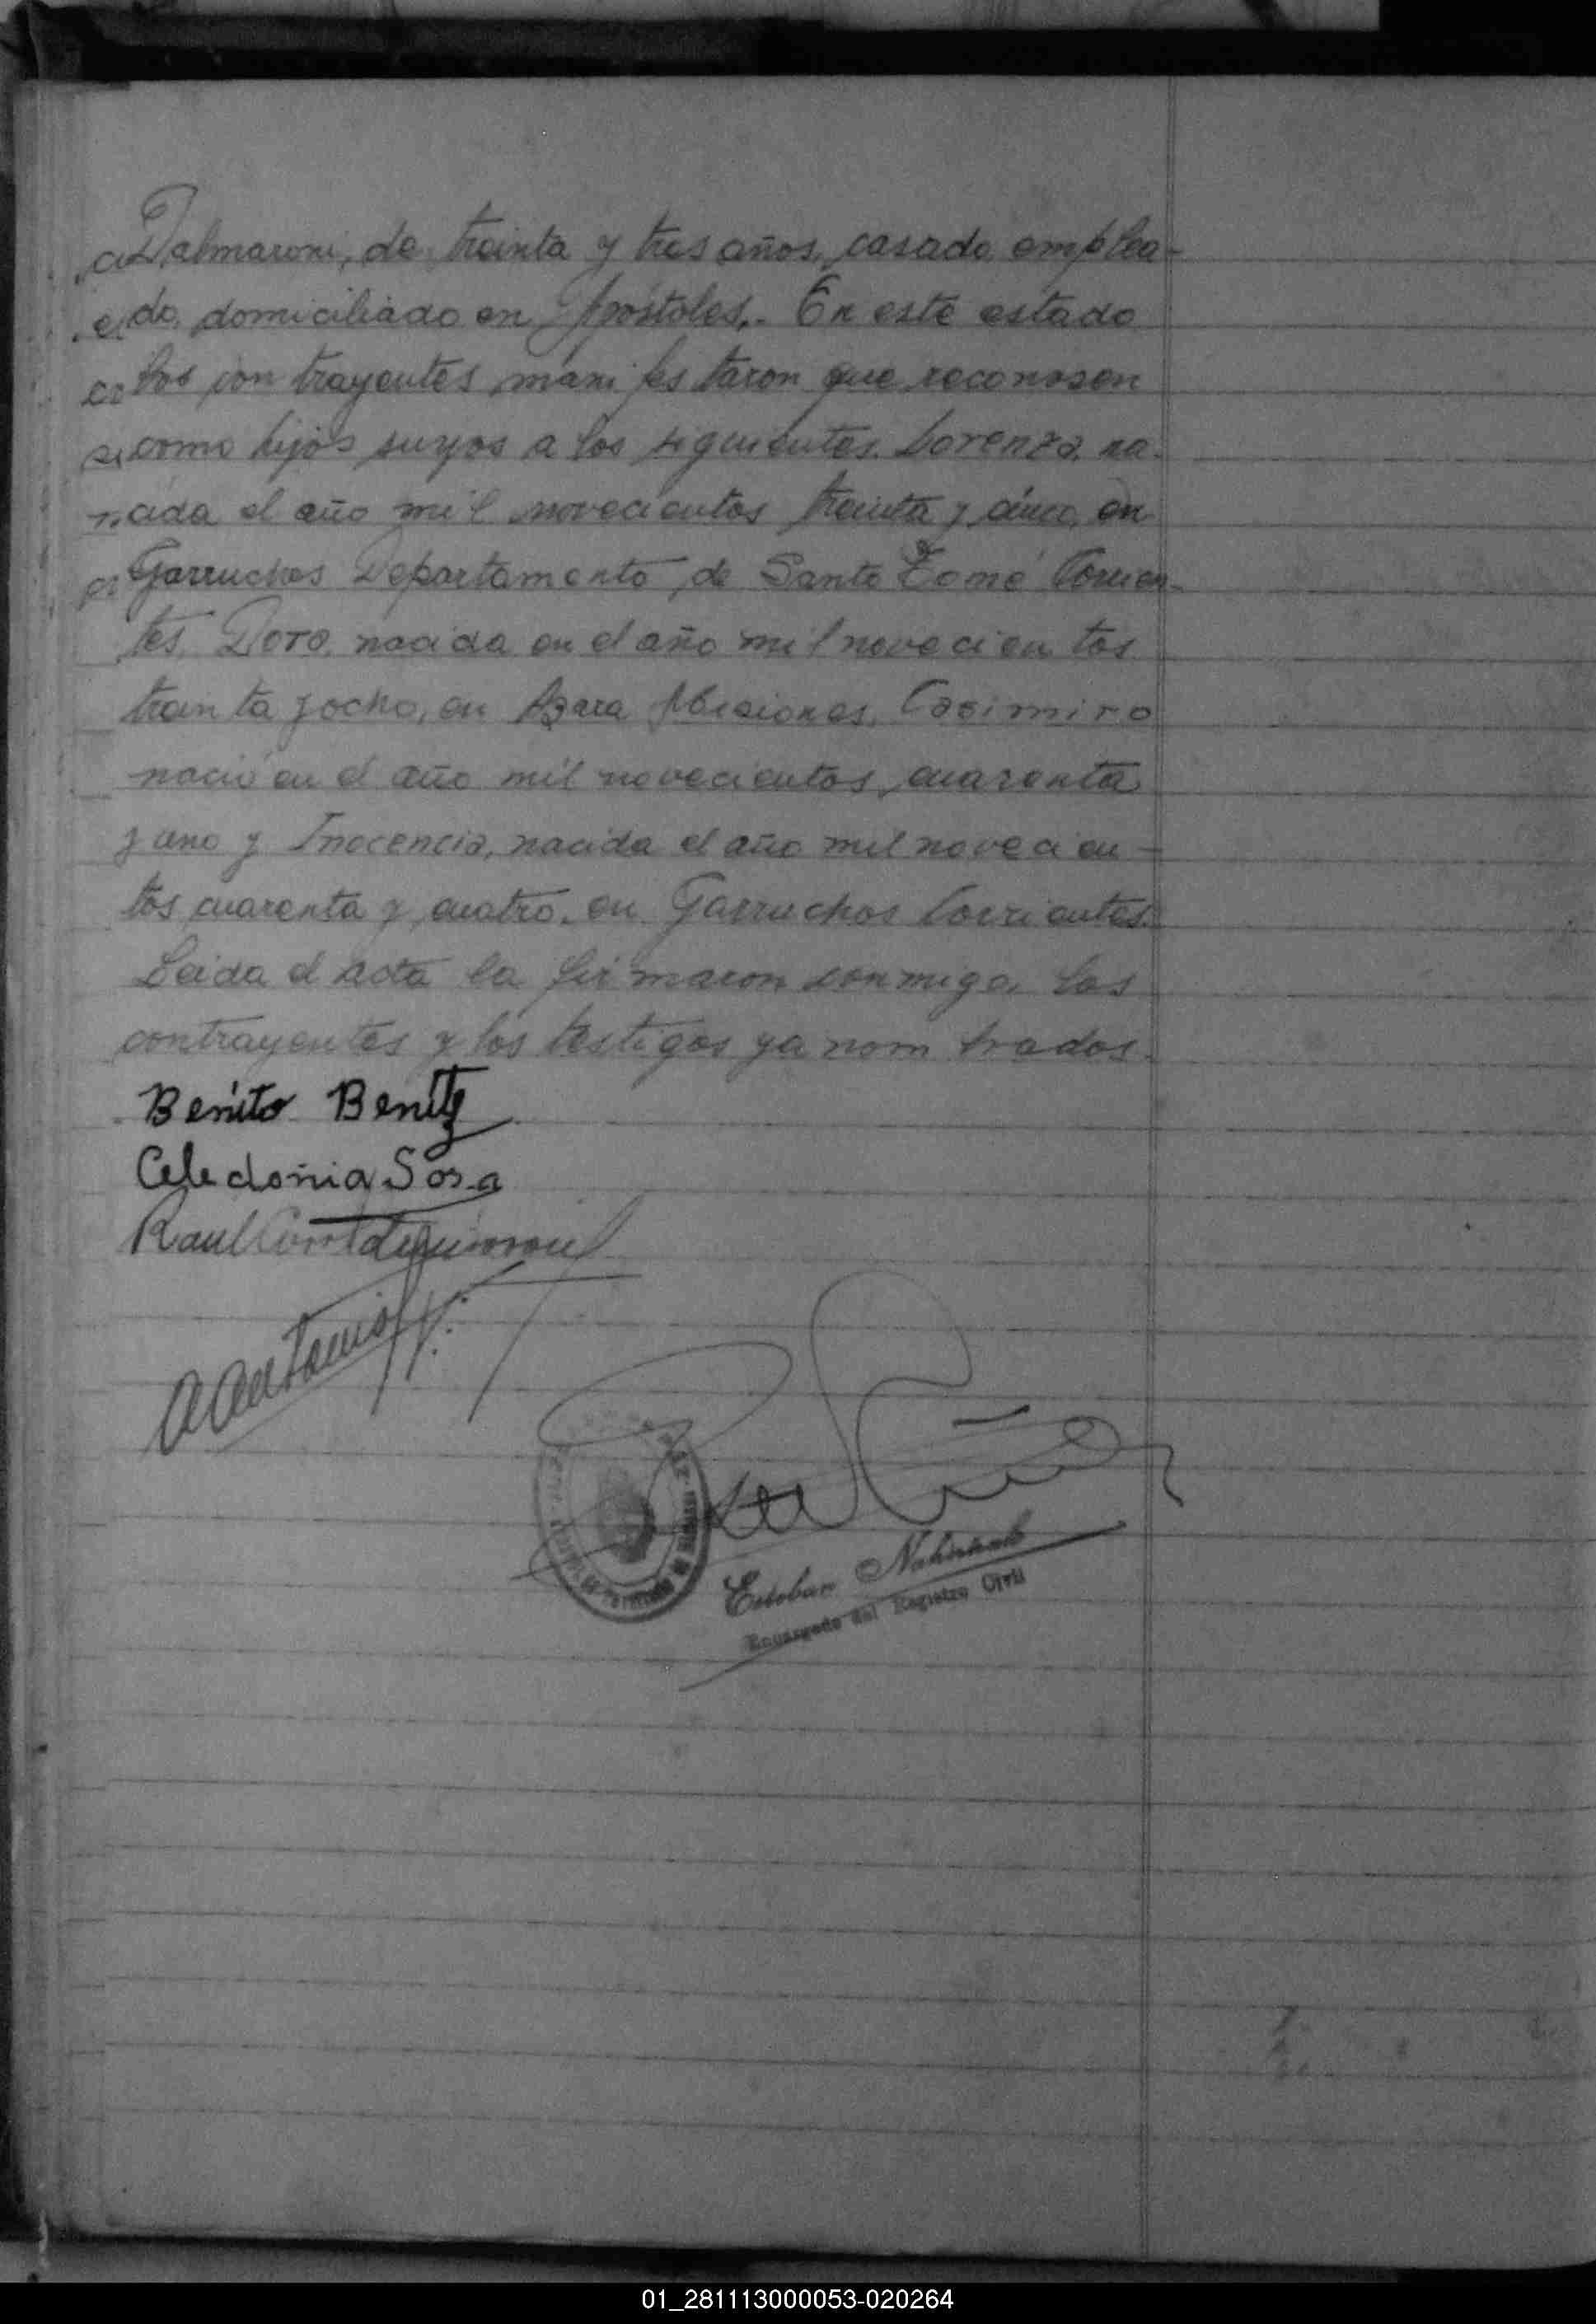 Dalmaroni, de treinta y tres años, casado emplea-
do, domiciliado en Apóstoles,. En este estado
los contrayentes manifestaron que reconosen
como hijos suyos a los siguientes. Lorenza, na-
cida el año mil novecientos treinta y cinco, en
Garruchos Departamento de Santo Tomé Corrien-
tes, Dora, nacida en el año mil novecientos
treinta y ocho, en Azara Misiones, Casimiro
nació en el año mil novecientos cuarenta
y uno y Inocencia, nacida el año mil novecien-
tos cuarenta y cuatro, en Garruchos Corrientes.
Leida el acta la firmaron conmigo, los
contrayentes y los testigos ya nombrados.
Benito Benitz
Celedoñia Sosa
Raul
Esteban
Encargado del Registro Civil
01_281113000053-020264